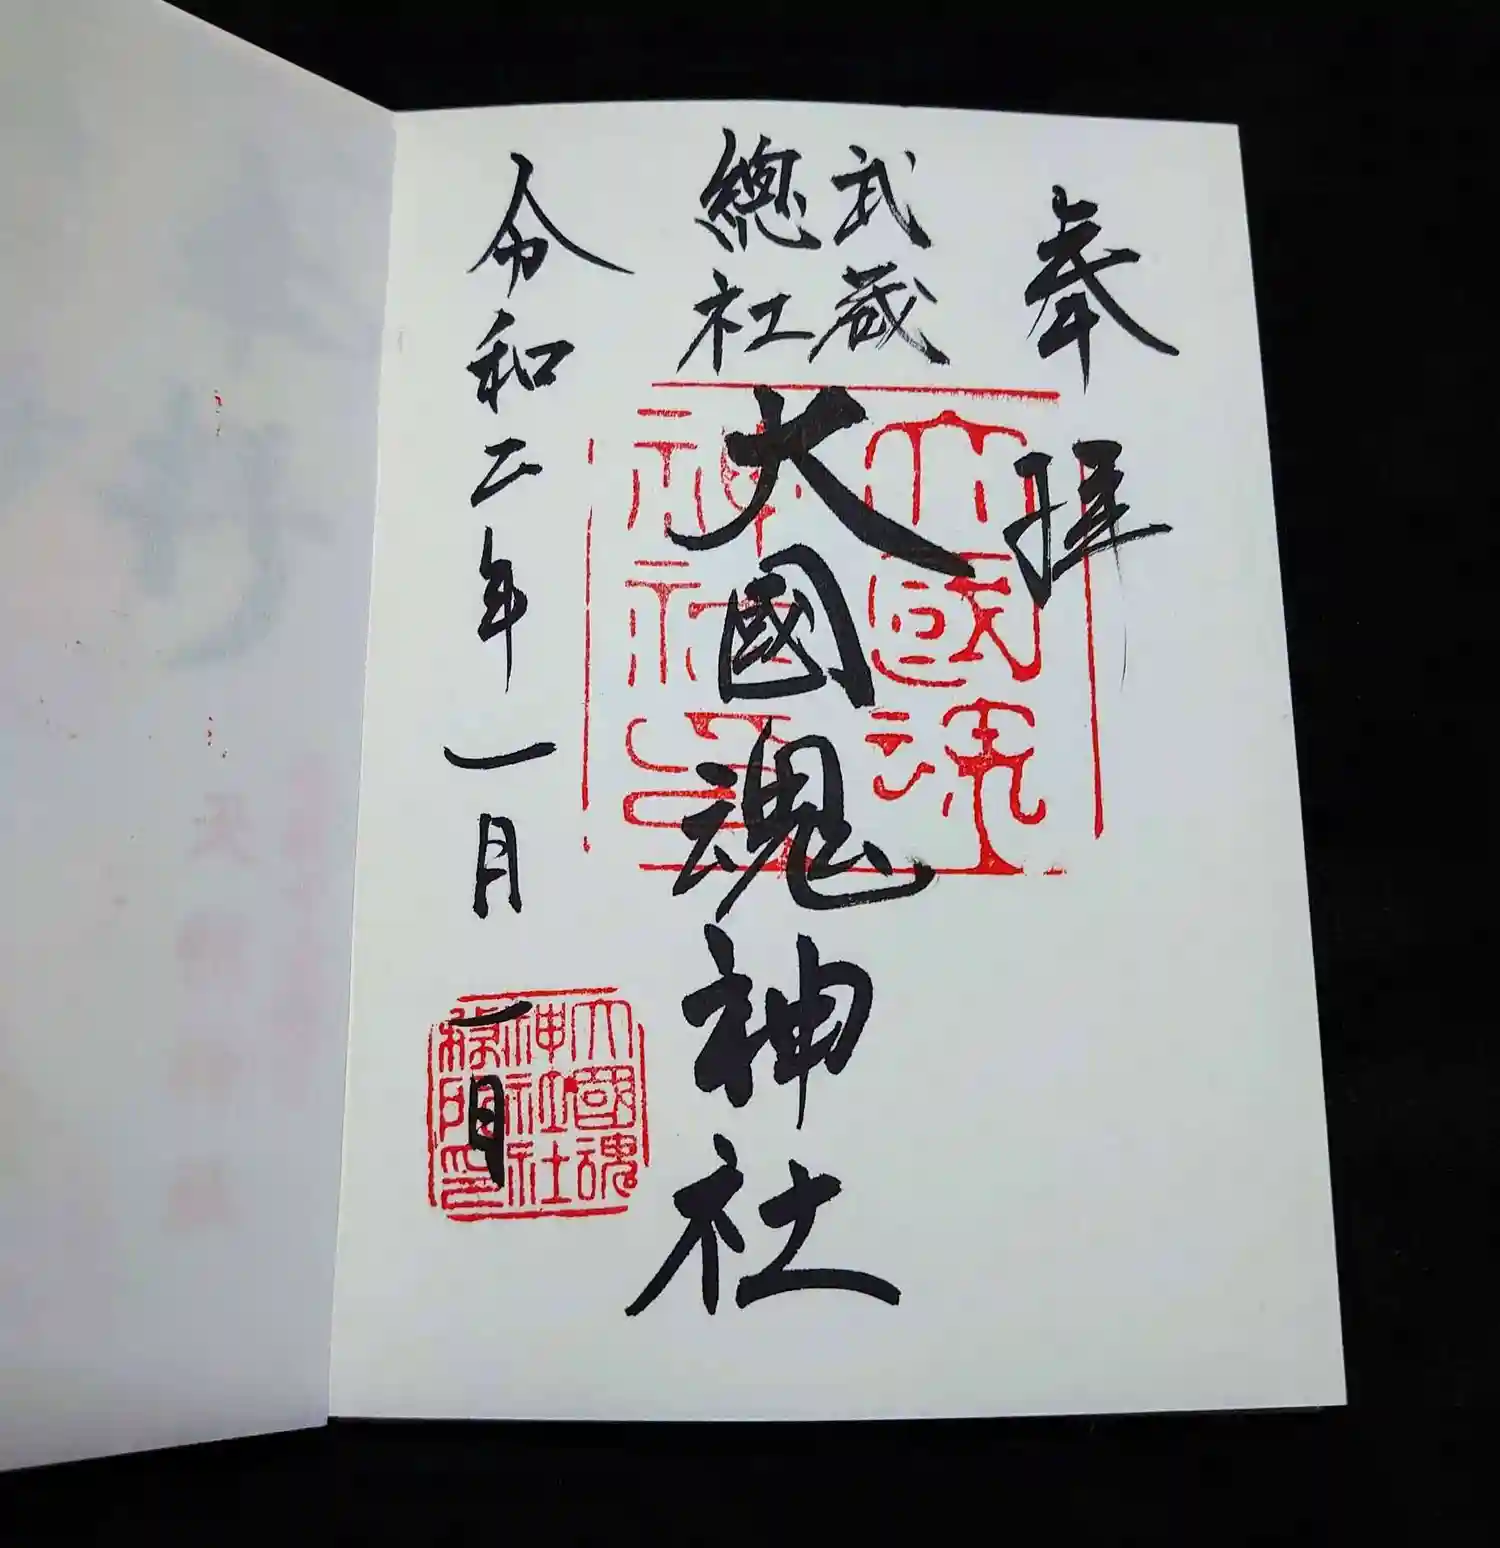 奉拝
武蔵
總社
大國魂神社
令和二年一月一日
大國魂
神社印
大國魂
神社社
務所印